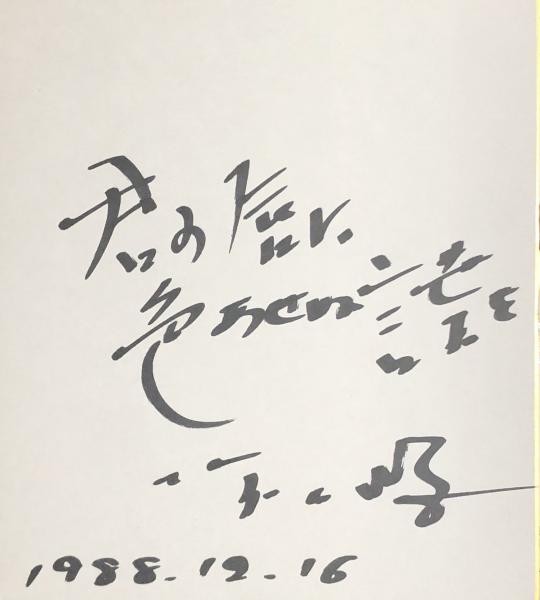 君の唇に
色あせぬ言葉を
1988.12.16